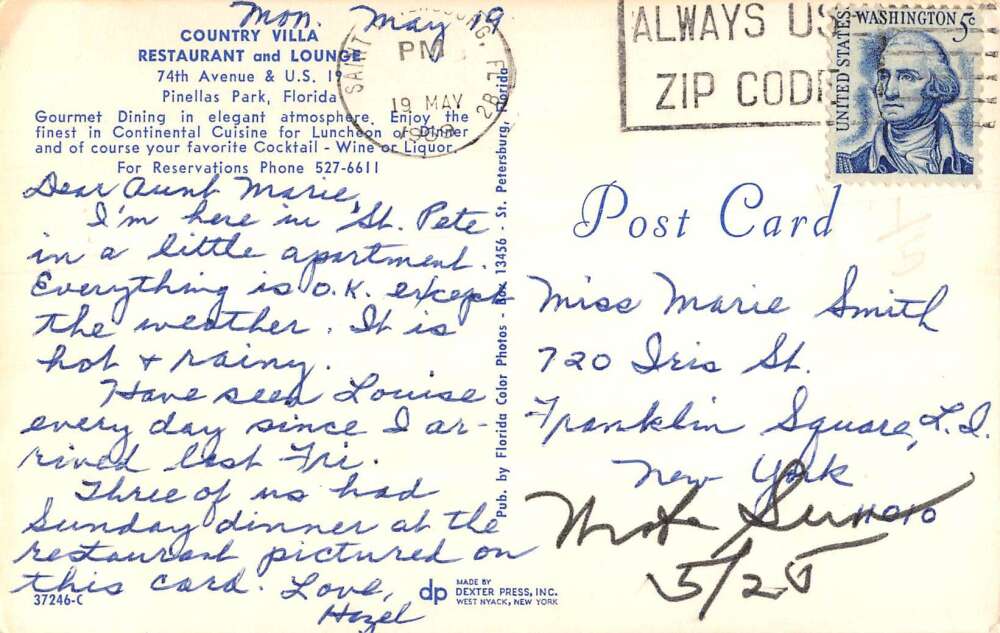 Mon. May 19
COUNTRY VILLA
RESTAURANT and LOUNGE
74th Avenue & U.S. 19
Pinellas Park, Florida
Gourmet Dining in elegant atmosphere. Enjoy the
finest in Continental Cuisine for Luncheon or Dinner
and of course your favorite Cocktail - Wine or Liquor.
For Reservations Phone 527-6611
Dear Aunt Marie,
I'm here in St. Pete
in a little apartment.
Everything is O.K. except
the weather. It is
hot & rainy.
Have seen Louise
every day since I ar-
rived last Fri.
Three of us had
Sunday dinner at the
restaurant pictured on
this card. Love,
Hazel
37246-C
dp MADE BY
DEXTER PRESS, INC.
WEST NYACK, NEW YORK
Pub. by Florida Color Photos - Box 13456 - St. Petersburg, Florida
SAINT PETERSBURG, FL
PM
19 MAY
ALWAYS US
ZIP CODE
UNITED STATES
WASHINGTON 5c
Post Card
Miss Marie Smith
720 Iris St.
Franklin Square, L.I.
New York
11010
Wrote Sun
5/25